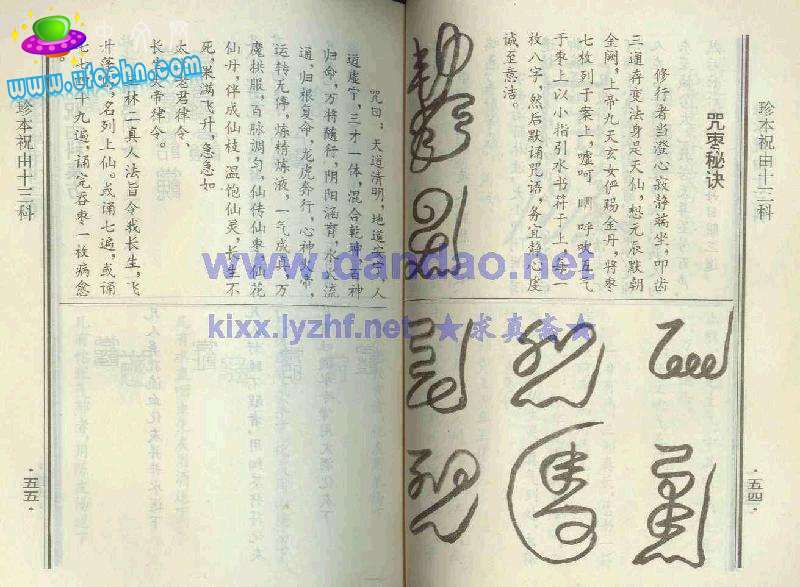 珍本祝由十三科
咒枣秘诀
修行者当澄心寂静端坐，叩齿
三通，存变法身是天仙，想元辰默朝
金阙，上帝九天玄女俨赐金丹，将枣
七枚列于案上，嘘呵呬呼吹五气
于枣上，以小指引水书符于上，每一
枚八字，然后默诵咒语，务宜趋心虔
诚至意洁。
·五四·
咒曰：天道清明，地道
道虚宁，三才一体，混合乾神，百神
归命，万将随行，阴阳涵育，水火流
通，归根复命，龙虎奔行，心神
运转无停，炼精炼液，一气成真，万
魔拱服，百脉调匀，仙传仙枣，仙花
仙丹，伴成仙枝，温饱仙灵，长生不
死，果满飞升，急急如
太 老君律令，
林二真人法旨令我长生，飞
长 大帝律令。
升 名列上仙。或诵七遍，或诵
七七四十九遍，诵完吞枣一枚病愈
珍本祝由十三科
·五五·
www.ufochn.com
www.dandao.net
kixx.lyzhf.net ★求真斋★